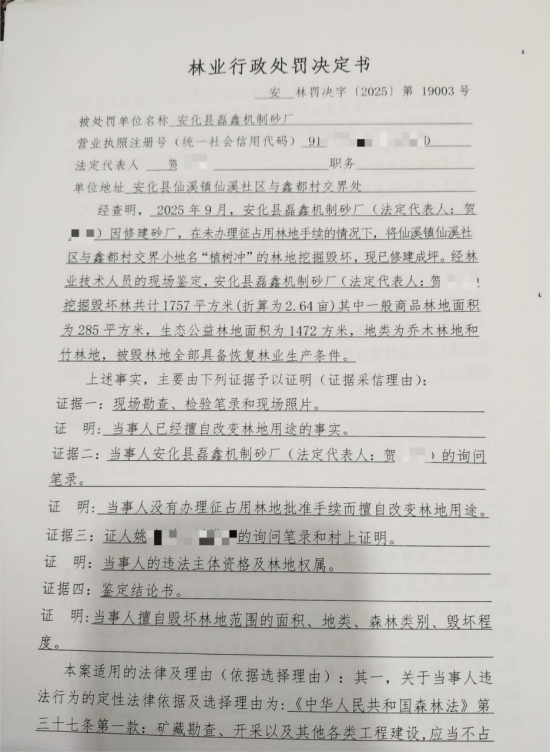 林业行政处罚决定书
安 林罚决字〔2025〕第 19003 号
被处罚单位名称 安化县磊鑫机制砂厂
营业执照注册号（统一社会信用代码） 91
法定代表人 贺 职务
单位地址 安化县仙溪镇仙溪社区与鑫都村交界处
经查明， 2025 年 9 月，安化县磊鑫机制砂厂（法定代表人：贺
）因修建砂厂，在未办理征占用林地手续的情况下，将仙溪镇仙溪社
区与鑫都村交界小地名“植树冲”的林地挖掘毁坏，现已修建成坪。经林
业技术人员的现场鉴定，安化县磊鑫机制砂厂（法定代表人：贺 ）
挖掘毁坏林共计 1757 平方米(折算为 2.64 亩)其中一般商品林地面积
为 285 平方米，生态公益林地面积为 1472 方米，地类为乔木林地和
竹林地，被毁林地全部具备恢复林业生产条件。
上述事实，主要由下列证据予以证明（证据采信理由）：
证据一：现场勘查、检验笔录和现场照片。
证 明：当事人已经擅自改变林地用途的事实。
证据二：当事人安化县磊鑫机制砂厂（法定代表人：贺 ）的询问
笔录。
证 明：当事人没有办理征占用林地批准手续而擅自改变林地用途。
证据三：证人姚 的询问笔录和村上证明。
证 明：当事人的违法主体资格及林地权属。
证据四：鉴定结论书。
证 明:当事人擅自毁坏林地范围的面积、地类、森林类别、毁坏程
度。
本案适用的法律及理由（依据选择理由）：其一，关于当事人违
法行为的定性法律依据及选择理由为：《中华人民共和国森林法》第
三十七条第一款：矿藏勘查、开采以及其他各类工程建设，应当不占